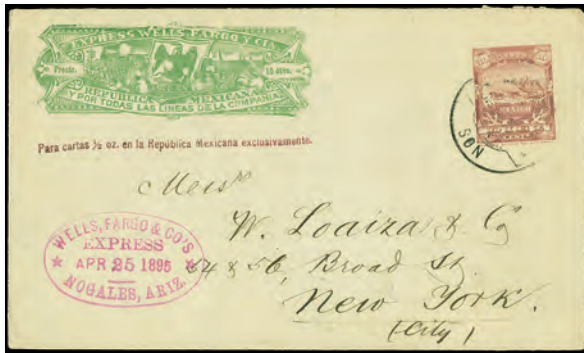 EXPRESS WELLS FARGO Y CIA.
Precio. 15 ctvs.
REPUBLICA MEXICANA
Y POR TODAS LAS LINEAS DE LA COMPAÑIA
Para cartas ½ oz. en la República Mexicana exclusivamente.
SON
Mess
W. Loaiza & Co
54 & 56, Broad St
New York.
(City)
WELLS, FARGO & CO'S
EXPRESS
APR 25 1896
NOGALES, ARIZ.